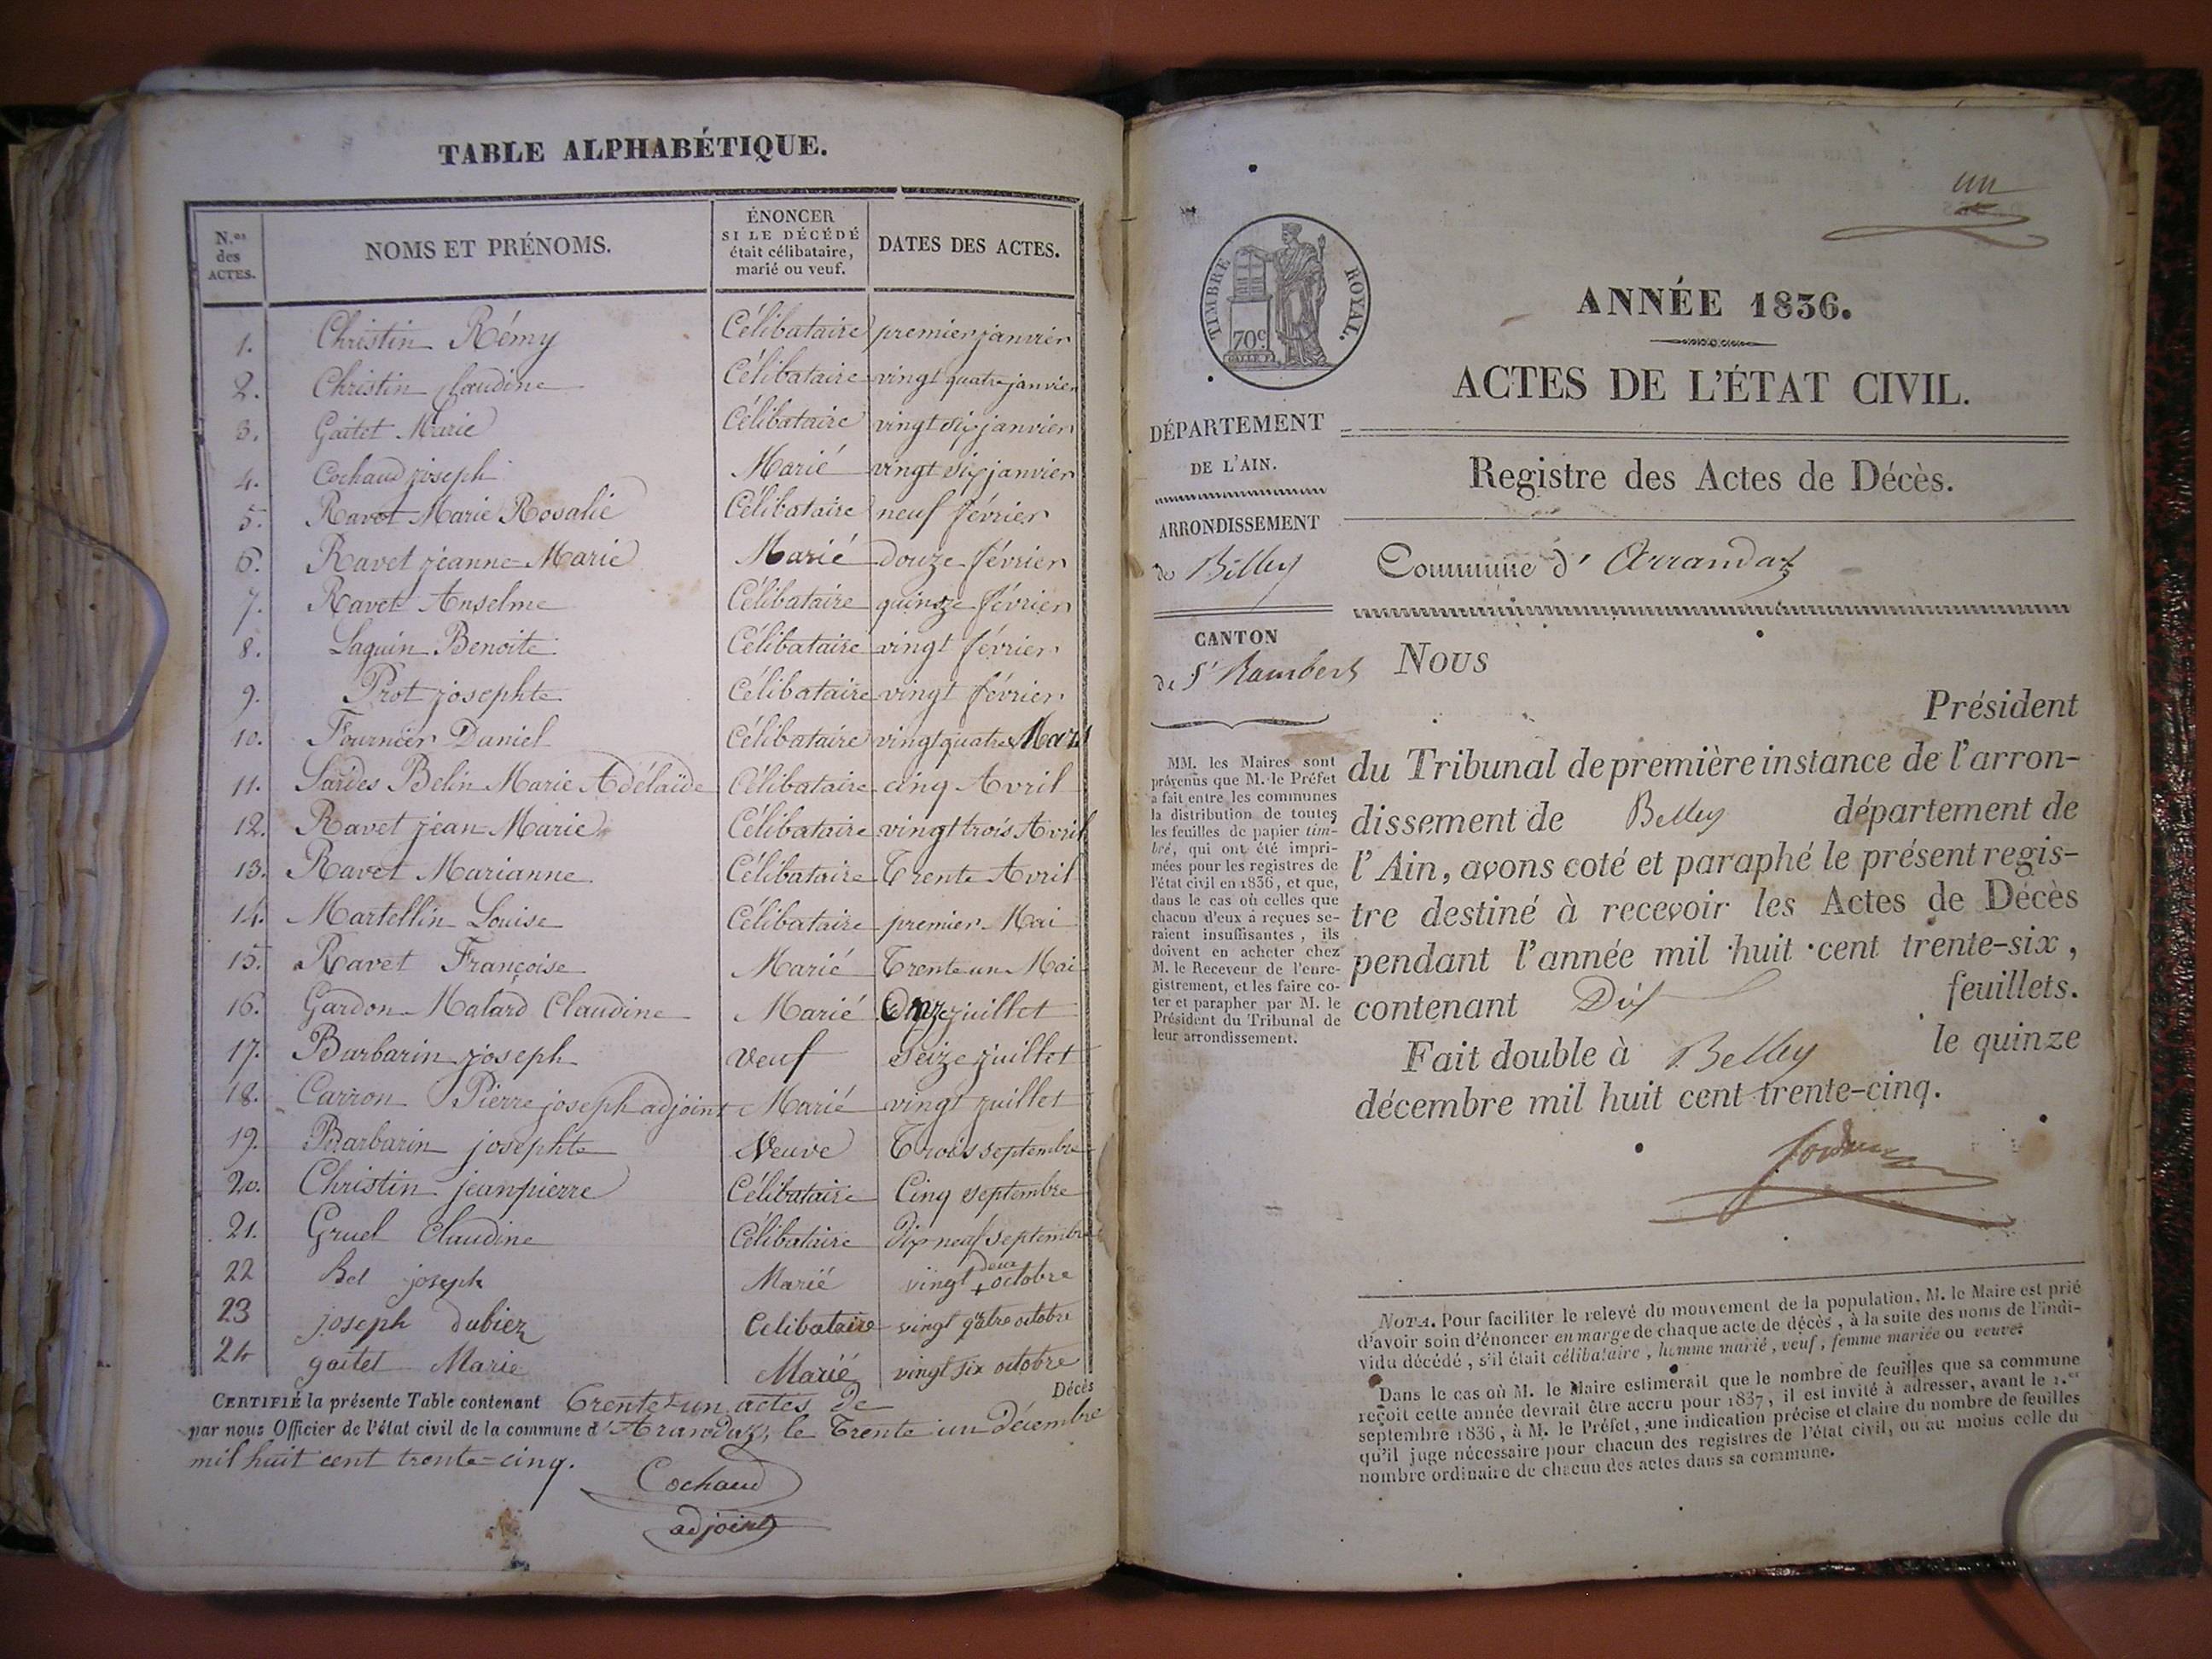 TABLE ALPHABÉTIQUE.
N.os des ACTES.
NOMS ET PRÉNOMS.
ÉNONCER SI LE DÉCÉDÉ était célibataire, marié ou veuf.
DATES DES ACTES.
1. Christin Rémy Célibataire premier janvier
2. Christin Claudine Célibataire vingt quatre janvier
3. Gaitet Marie Célibataire vingt six janvier
4. Cochaud joseph Marié vingt six janvier
5. Ravet Marie Rosalie Célibataire neuf février
6. Ravet jeanne-Marie Marié Douze février
7. Ravet Anselme Célibataire quinze février
8. Laguin Benoite Célibataire vingt février
9. Prot josephte Célibataire vingt février
10. Fournier Daniel Célibataire vingt quatre Mars
11. Sardes Belin Marie Adélaïde Célibataire cinq Avril
12. Ravet jean Marie Célibataire vingt trois Avril
13. Ravet Marianne Célibataire Trente Avril
14. Martellin Louise Célibataire premier Mai
15. Ravet Françoise Marié Trente un Mai
16. Gardon Matard Claudine Marié Onze juillet
17. Barbarin joseph veuf seize juillet
18. Carron Pierre joseph adjoint Marié vingt juillet
19. Barbarin josephte Veuve Trois septembre
20. Christin jeanpierre Célibataire Cinq septembre
21. Gruel Claudine Célibataire dix neuf septembre
22 Bel joseph Marié vingt deux octobre
23 joseph dubiez Celibataire vingt quatre octobre
24 gaitet Marie Marié vingt six octobre
CERTIFIÉ la présente Table contenant Trente-un actes de Décès
par nous Officier de l'état civil de la commune d'Arandaz, le Trente un Décembre
mil huit cent trente=cinq.
Cochaud
adjoint
un
TIMBRE ROYAL.
70c.
ANNÉE 1836.
ACTES DE L'ÉTAT CIVIL.
DÉPARTEMENT
DE L'AIN.
Registre des Actes de Décès.
ARRONDISSEMENT
de Belley
Commune d'Arrandaz
CANTON
de St Rambert
MM. les Maires sont
prévenus que M. le Préfet
a fait entre les communes
la distribution de toutes
les feuilles de papier tim-
bré, qui ont été impri-
mées pour les registres de
l'état civil en 1836, et que,
dans le cas où celles que
chacun d'eux a reçues se-
raient insuffisantes, ils
doivent en acheter chez
M. le Receveur de l'enre-
gistrement, et les faire co-
ter et parapher par M. le
Président du Tribunal de
leur arrondissement.
Nous
Président
du Tribunal de première instance de l'arron-
dissement de Belley département de
l'Ain, avons coté et paraphé le présent regis-
tre destiné à recevoir les Actes de Décès
pendant l'année mil huit cent trente-six,
contenant Dix feuillets.
Fait double à Belley le quinze
décembre mil huit cent trente-cinq.
NOTA. Pour faciliter le relevé du mouvement de la population, M. le Maire est prié
d'avoir soin d'énoncer en marge de chaque acte de décès, à la suite des noms de l'indi-
vidu décédé, s'il était célibataire, homme marié, veuf, femme mariée ou veuve.
Dans le cas où M. le Maire estimerait que le nombre de feuilles que sa commune
reçoit cette année devrait être accru pour 1837, il est invité à adresser, avant le 1.er
septembre 1836, à M. le Préfet, une indication précise et claire du nombre de feuilles
qu'il juge nécessaire pour chacun des registres de l'état civil, ou au moins celle du
nombre ordinaire de chacun des actes dans sa commune.